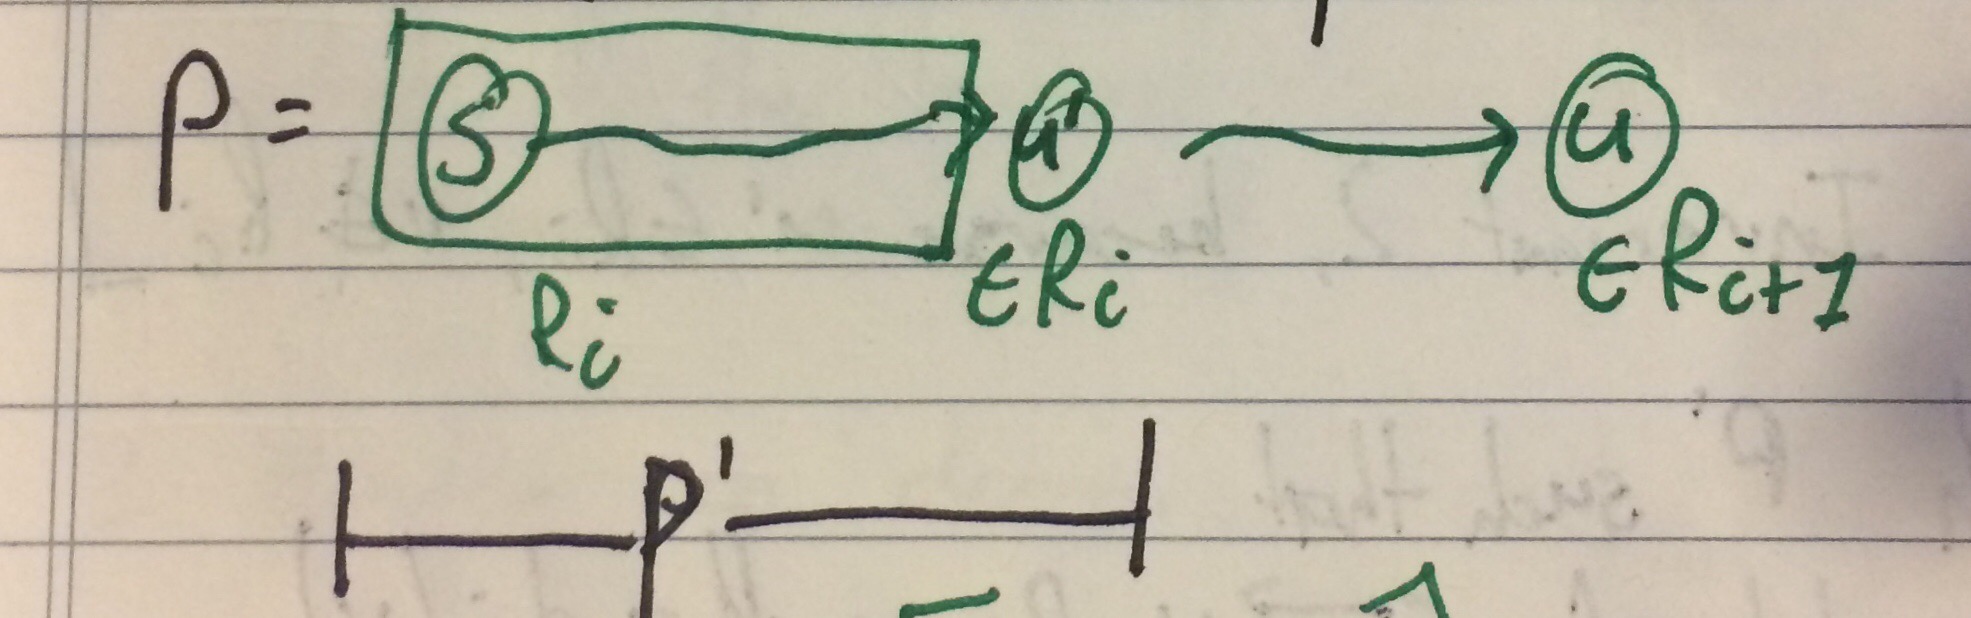 P = S u' u
∈Ri ∈Ri+1
Ri
P'